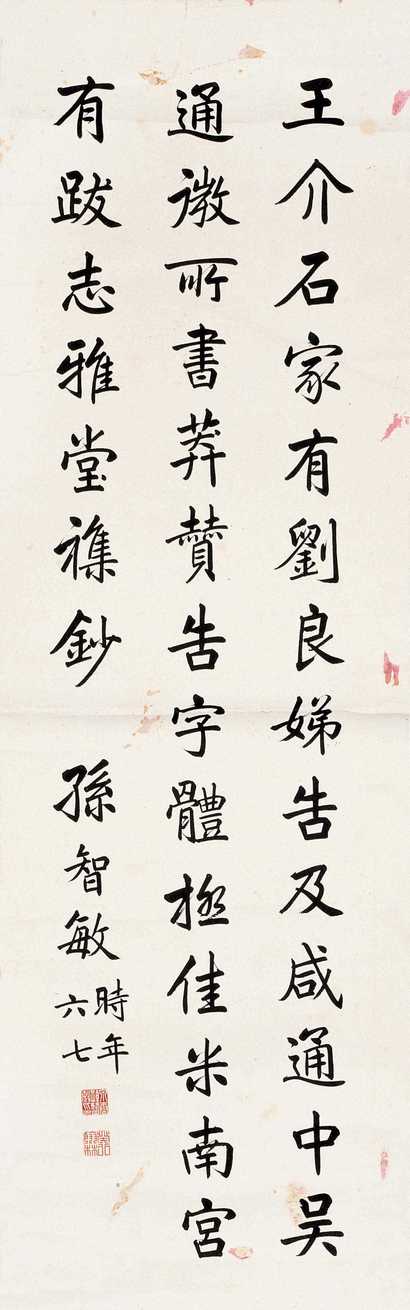 王介石家有劉良娣告及咸通中吳
通微所書莽贊告字體極佳米南宮
有跋志雅堂襍鈔
孫智敏
時年
六七